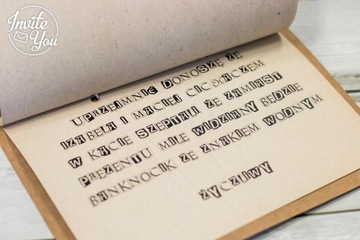 Invite
You
UPRZEJMIE DONOSZĘ ŻE
IZABELA I MACIEJ CICHACZEM
W KĄCIE SZEPTALI ŻE ZAMIAST
PREZENTU MILE WIDZIANY BĘDZIE
BANKNOCIK ZE ZNAKIEM WODNYM
ŻYCZLIWY